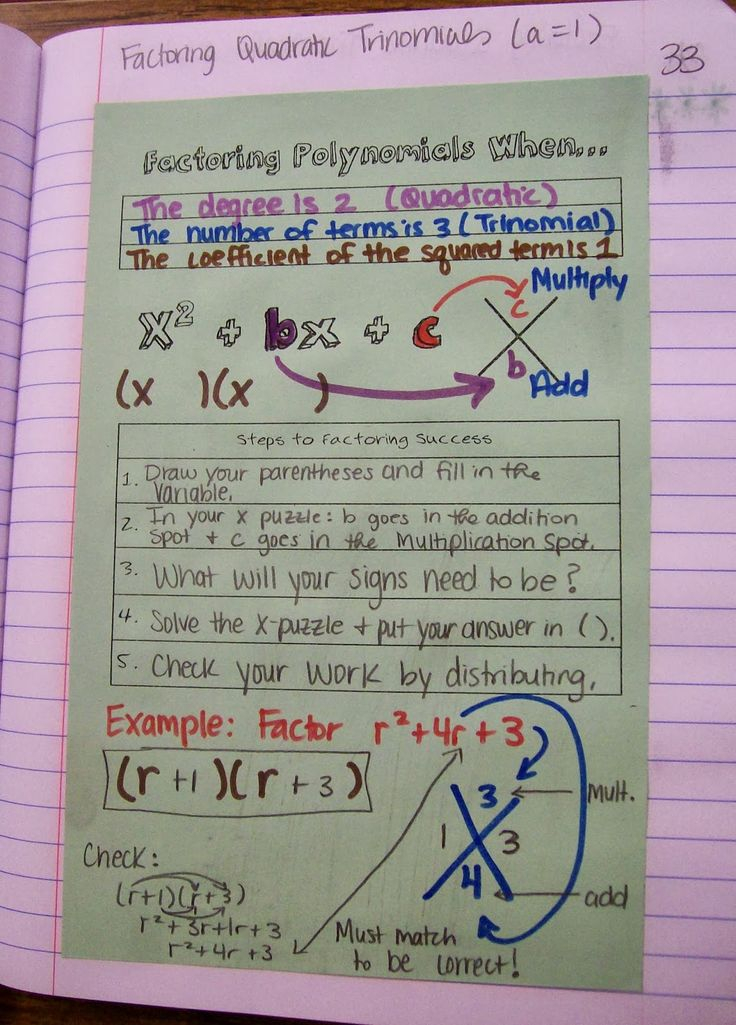 Factoring Quadratic Trinomials (a=1)
33
Factoring Polynomials When...
The degree is 2 (Quadratic)
The number of terms is 3 (Trinomial)
The coefficient of the squared term is 1
Multiply
c
x² + bx + c
b
Add
(x )(x )
Steps to Factoring Success
1. Draw your parentheses and fill in the
variable.
2. In your x puzzle: b goes in the addition
spot + c goes in the multiplication spot.
3. What will your signs need to be?
4. Solve the x-puzzle + put your answer in ( ).
5. Check your work by distributing.
Example: Factor r²+4r+3
(r +1)(r +3)
3
Mult.
1 3
4
add
Check:
(r+1)(r+3)
r²+3r+1r+3
r²+4r+3
Must match
to be correct!